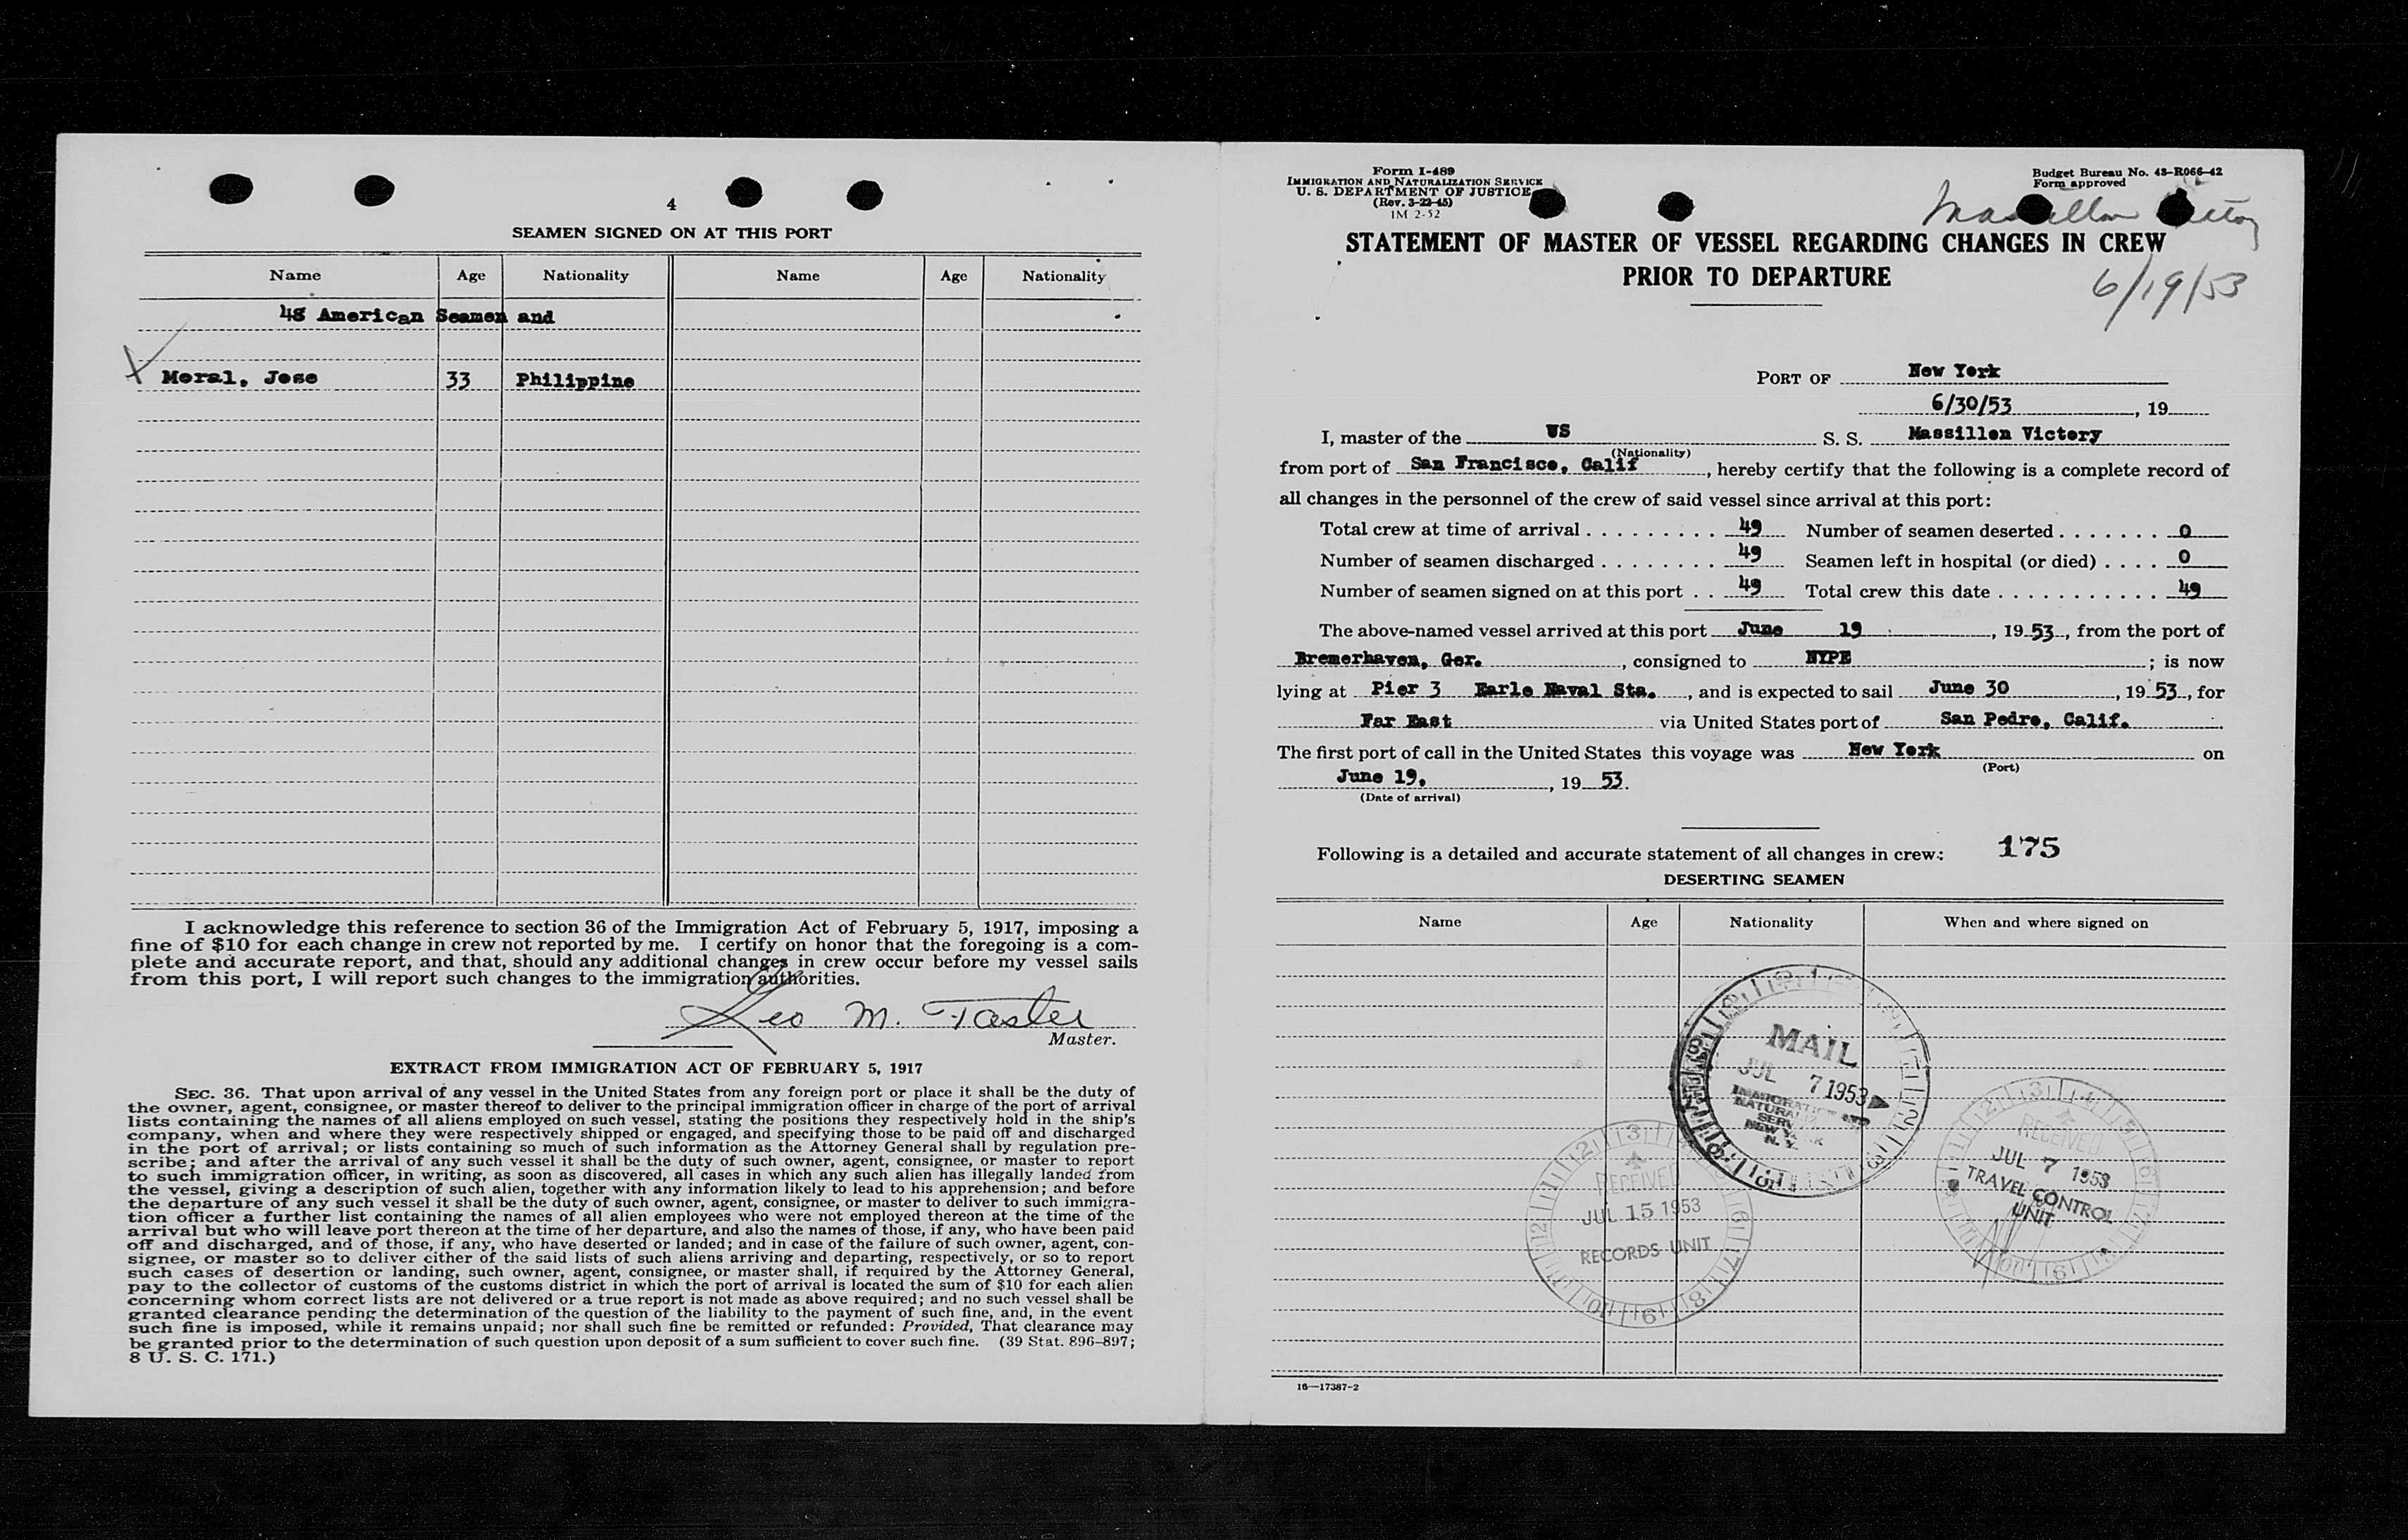 4
SEAMEN SIGNED ON AT THIS PORT
Name Age Nationality Name Age Nationality
48 American Seamen and
Moral, Jose 33 Philippine
I acknowledge this reference to section 36 of the Immigration Act of February 5, 1917, imposing a
fine of $10 for each change in crew not reported by me. I certify on honor that the foregoing is a com-
plete and accurate report, and that, should any additional changes in crew occur before my vessel sails
from this port, I will report such changes to the immigration authorities.
Leo M. Taster
Master.
EXTRACT FROM IMMIGRATION ACT OF FEBRUARY 5, 1917
SEC. 36. That upon arrival of any vessel in the United States from any foreign port or place it shall be the duty of
the owner, agent, consignee, or master thereof to deliver to the principal immigration officer in charge of the port of arrival
lists containing the names of all aliens employed on such vessel, stating the positions they respectively hold in the ship's
company, when and where they were respectively shipped or engaged, and specifying those to be paid off and discharged
in the port of arrival; or lists containing so much of such information as the Attorney General shall by regulation pre-
scribe; and after the arrival of any such vessel it shall be the duty of such owner, agent, consignee, or master to report
to such immigration officer, in writing, as soon as discovered, all cases in which any such alien has illegally landed from
the vessel, giving a description of such alien, together with any information likely to lead to his apprehension; and before
the departure of any such vessel it shall be the duty of such owner, agent, consignee, or master to deliver to such immigra-
tion officer a further list containing the names of all alien employees who were not employed thereon at the time of the
arrival but who will leave port thereon at the time of her departure, and also the names of those, if any, who have been paid
off and discharged, and of those, if any, who have deserted or landed; and in case of the failure of such owner, agent, con-
signee, or master so to deliver either of the said lists of such aliens arriving and departing, respectively, or so to report
such cases of desertion or landing, such owner, agent, consignee, or master shall, if required by the Attorney General,
pay to the collector of customs of the customs district in which the port of arrival is located the sum of $10 for each alien
concerning whom correct lists are not delivered or a true report is not made as above required; and no such vessel shall be
granted clearance pending the determination of the question of the liability to the payment of such fine, and, in the event
such fine is imposed, while it remains unpaid; nor shall such fine be remitted or refunded: Provided, That clearance may
be granted prior to the determination of such question upon deposit of a sum sufficient to cover such fine. (39 Stat. 896–897;
8 U. S. C. 171.)
Form I-489
IMMIGRATION AND NATURALIZATION SERVICE
U. S. DEPARTMENT OF JUSTICE
(Rev. 3-22-45)
1M 2-52
Budget Bureau No. 43-R066-42
Form approved
STATEMENT OF MASTER OF VESSEL REGARDING CHANGES IN CREW
PRIOR TO DEPARTURE
6/19/53
PORT OF New York
6/30/53, 19
I, master of the US S. S. Massillon Victory
(Nationality)
from port of San Francisco, Calif, hereby certify that the following is a complete record of
all changes in the personnel of the crew of said vessel since arrival at this port:
Total crew at time of arrival . . . . . . . . . 49 Number of seamen deserted . . . . . . . 0
Number of seamen discharged . . . . . . . . 49 Seamen left in hospital (or died) . . . . 0
Number of seamen signed on at this port . . 49 Total crew this date . . . . . . . . . . . 49
The above-named vessel arrived at this port June 19, 19 53, from the port of
Bremerhaven, Ger., consigned to NYPE; is now
lying at Pier 3 Earle Naval Sta., and is expected to sail June 30, 19 53, for
Far East via United States port of San Pedro, Calif.
The first port of call in the United States this voyage was New York on
(Port)
June 19, , 19 53.
(Date of arrival)
Following is a detailed and accurate statement of all changes in crew: 175
DESERTING SEAMEN
Name Age Nationality When and where signed on
MAIL
JUL 7 1953
IMMIGRATION AND
RECEIVED
JUL 7 1953
TRAVEL CONTROL
UNIT
RECEIVED
JUL 15 1953
RECORDS UNIT
16—17387-2